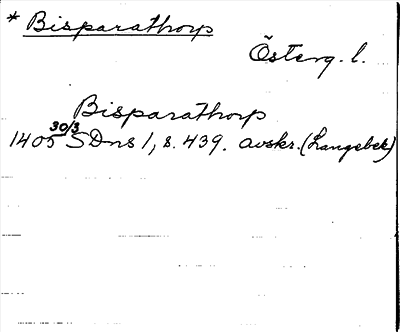 * Bisparathorp
Österg. l.
Bisparathorp
1405 30/3 SDns 1, s. 439. avskr. (Langebek)